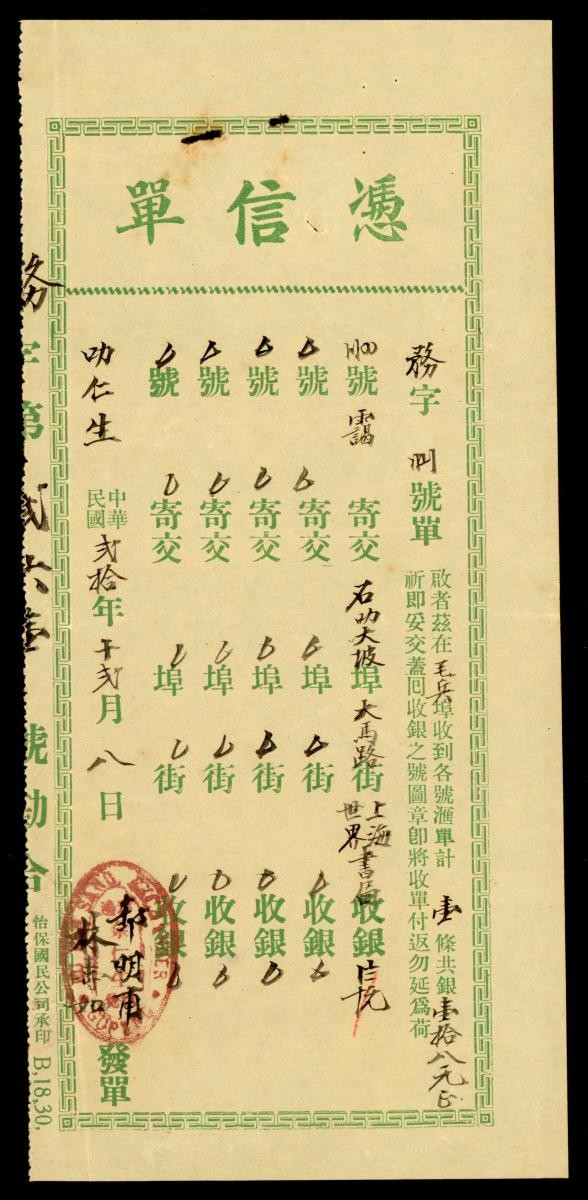 憑信單
務字 號單
啟者茲在毛兵埠收到各號滙單計 壹 條共銀壹拾八元正
祈即妥交蓋囘收銀之號圖章卽將收單付返勿延爲荷
號 寄交 石叻大坡埠 大馬路街 上海世界書局 收銀
號 寄交 埠 街 收銀
號 寄交 埠 街 收銀
號 寄交 埠 街 收銀
號 寄交 埠 街 收銀
叻仁生
中華民國 弍拾年 十弍月 八日 發單
林
明
怡保國民公司承印 B,18,30,
務字第 弍六壹 號勘合